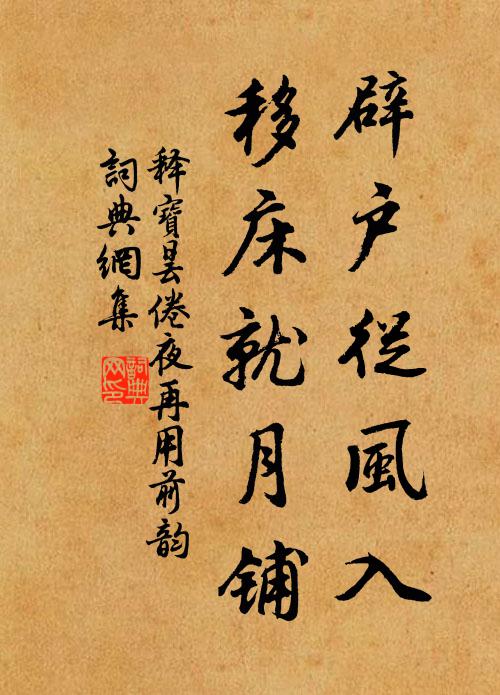 辟户從風入
移床就月鋪
释寶昙倦夜再用前韵
詞典網集
詞典網印